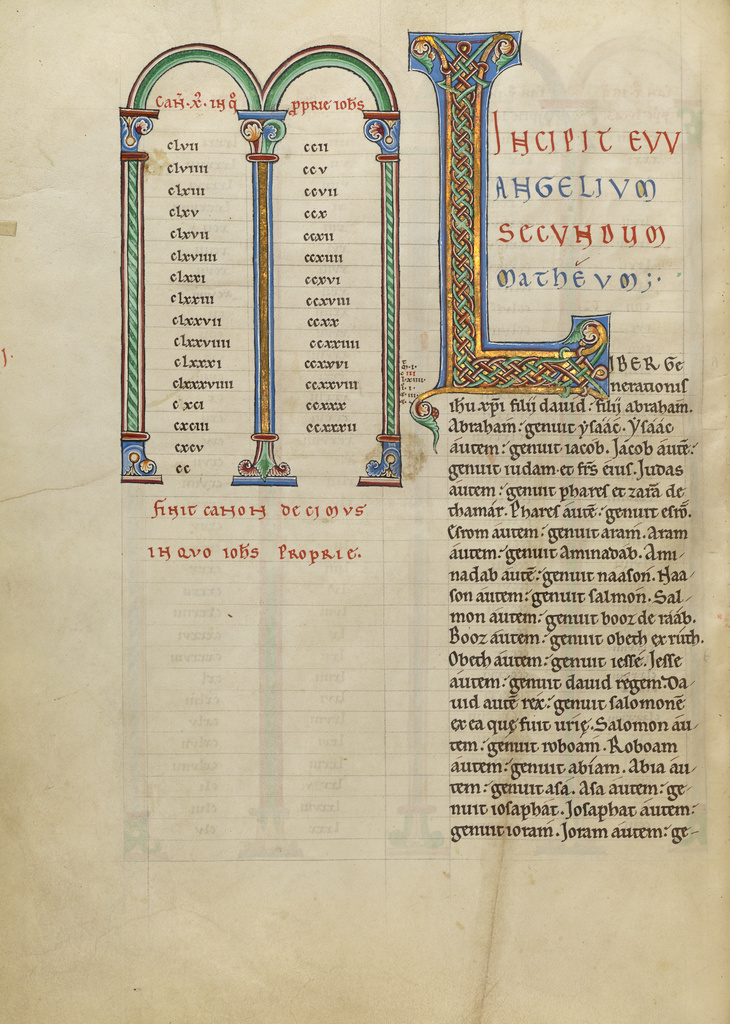 Can̄. x̄. in q̄
ꝓprie ioh̄s
clvii
clviiii
clxiii
clxv
clxvii
clxviiii
clxxi
clxxiii
clxxvii
clxxviiii
clxxxi
clxxxviiii
cxci
cxciii
cxcv
cc
ccii
ccv
ccvii
ccx
ccxii
ccxiiii
ccxvi
ccxviii
ccxx
ccxxiiii
ccxxvi
ccxxviii
ccxxx
ccxxxii
finit canon decimvs
in qvo ioh̄s proprie.
L
INCIPIT EVV
ANGELIVM
SECVNDVM
MATHEVM;
IBER GE
nerationis
ihu xp̄i filij dauid: filij abraham.
Abraham: genuit ysaac. Ysaac
autem: genuit iacob. Jacob autē:
genuit iudam et fr̄s eius. Judas
autem: genuit phares et zarā de
thamar. Phares autē: genuit esrō.
Esrom autem: genuit aram. Aram
autem: genuit Aminadab. Ami-
nadab autē: genuit naason. Naa-
son autem: genuit salmon. Sal-
mon autem: genuit booz de raab.
Booz autem: genuit obeth ex ruth.
Obeth autem: genuit iesse. Jesse
autem: genuit dauid regem. Da-
uid autē rex: genuit salomonē
ex ea quę fuit urię. Salomon au-
tem: genuit roboam. Roboam
autem: genuit abiam. Abia au-
tem: genuit asa. Asa autem: ge-
nuit iosaphat. Josaphat autem:
genuit ioram. Joram autem: ge-